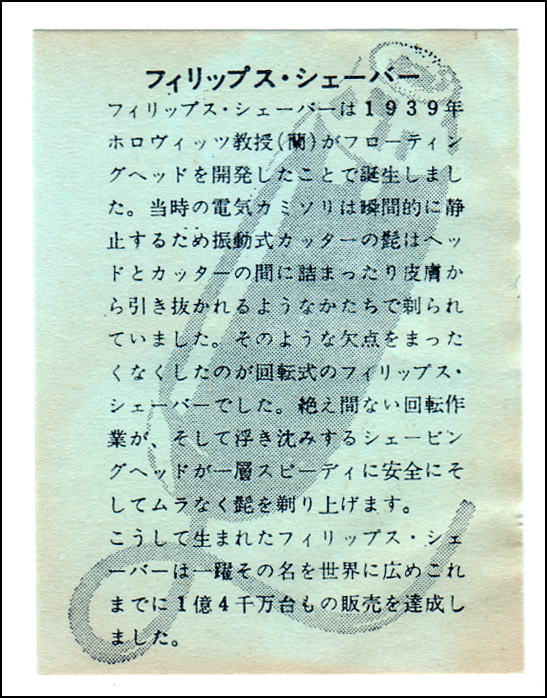 フィリップス・シェーバー
フィリップス・シェーバーは1939年
ホロヴィッツ教授(蘭)がフローティン
グヘッドを開発したことで誕生しまし
た。当時の電気カミソリは瞬間的に静
止するため振動式カッターの髭はヘッ
ドとカッターの間に詰まったり皮膚か
ら引き抜かれるようなかたちで剃られ
ていました。そのような欠点をまった
くなくしたのが回転式のフィリップス・
シェーバーでした。絶え間ない回転作
業が、そして浮き沈みするシェービン
グヘッドが一層スピーディに安全にそ
してムラなく髭を剃り上げます。
こうして生まれたフィリップス・シェ
ーバーは一躍その名を世界に広めこれ
までに1億4千万台もの販売を達成し
ました。